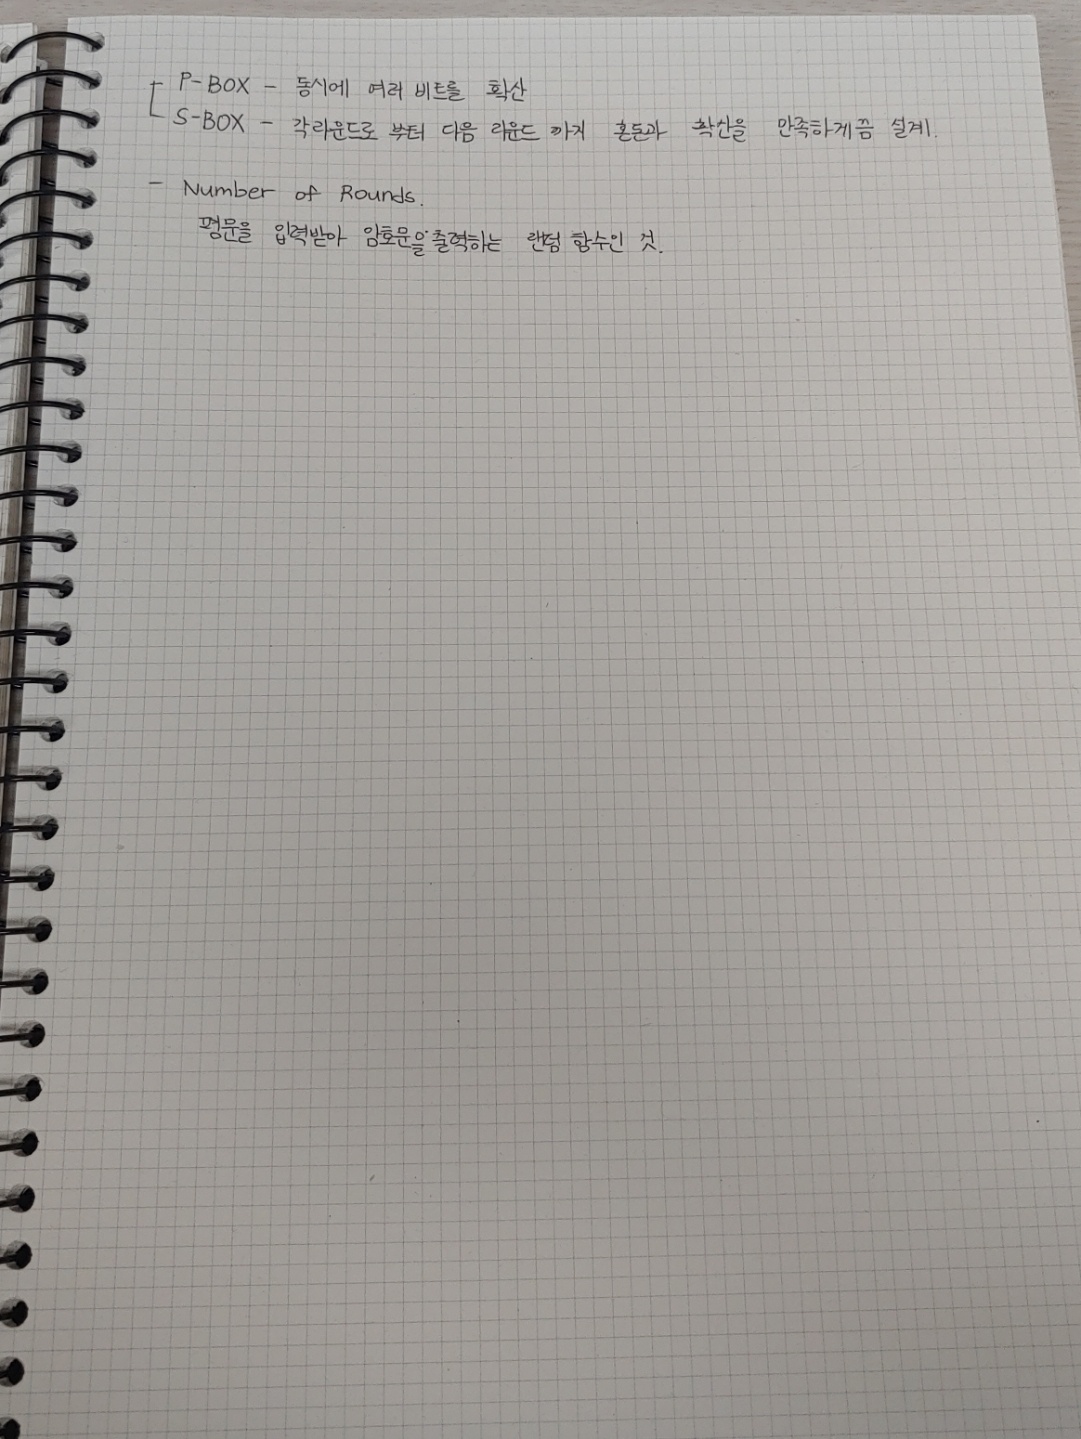 P-BOX - 동시에 여러 비트를 확산
S-BOX - 각라운드로 부터 다음 라운드 까지 혼돈과 확산을 만족하게끔 설계.
- Number of Rounds.
평문을 입력받아 암호문을 출력하는 랜덤 함수인 것.